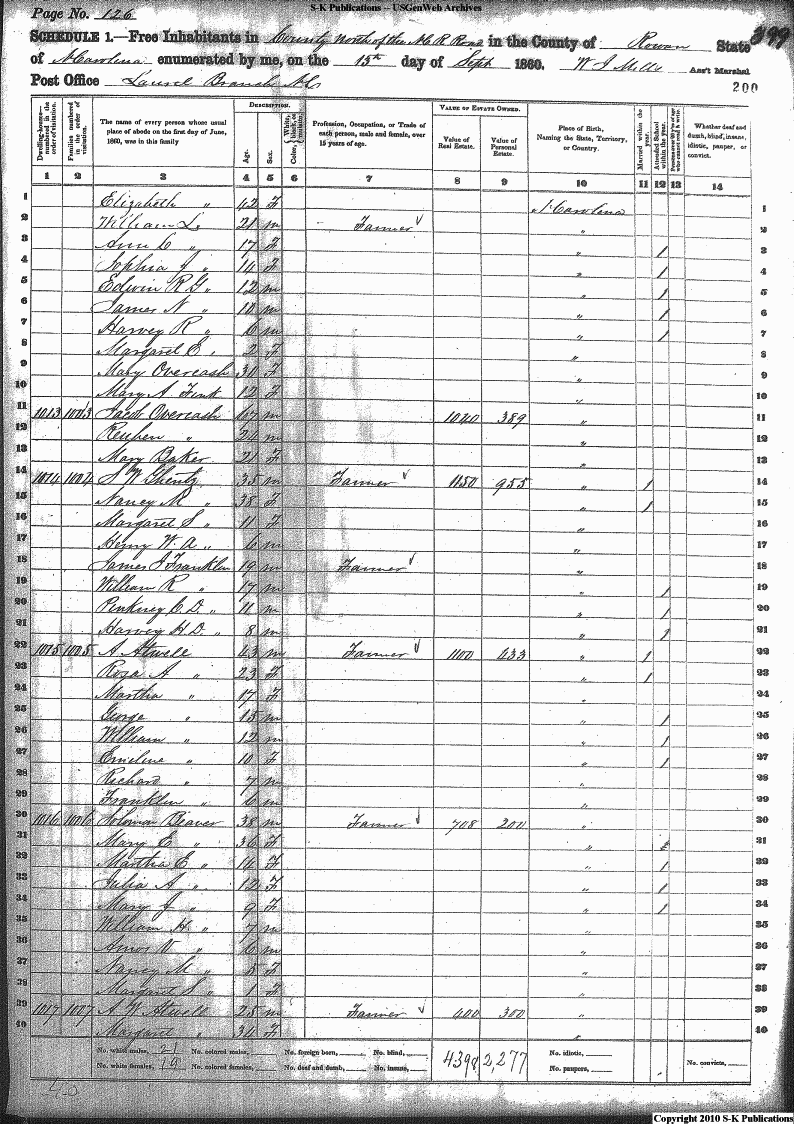 S-K Publications – USGenWeb Archives
Page No. 126
399
SCHEDULE 1.—Free Inhabitants in County North of the N C R Road in the County of Rowan State
of N Carolina enumerated by me, on the 15th day of Sept 1860. W J Mills Ass't Marshal
Post Office Laurel Branch N C
200
Dwelling-houses—numbered in the order of visitation.
Families numbered in the order of visitation.
The name of every person whose usual place of abode on the first day of June, 1860, was in this family
DESCRIPTION.
Age.
Sex.
Color, White, black, or mulatto.
Profession, Occupation, or Trade of each person, male and female, over 15 years of age.
VALUE OF ESTATE OWNED.
Value of Real Estate.
Value of Personal Estate.
Place of Birth, Naming the State, Territory, or Country.
Married within the year.
Attended School within the year.
Persons over 20 y'rs of age who cannot read & write.
Whether deaf and dumb, blind, insane, idiotic, pauper, or convict.
1 2 3 4 5 6 7 8 9 10 11 12 13 14
1 Elizabeth " 42 F N Carolina 1
2 William L. 21 m Farmer " 2
3 Ann C " 17 F " / 3
4 Sophia J " 14 F " / 4
5 Edwin R G " 12 m " / 5
6 James N " 10 m " / 6
7 Harvey R " 6 m " / 7
8 Margaret E " 2 F " 8
9 Mary Overcash 30 F " 9
10 Mary A Fink 12 F " 10
11 1013 1003 Jacob Overcash 67 m 1040 389 " 11
12 Reuben " 24 m " 12
13 Mary Baker 21 F " 13
14 1014 1004 S W Ghentz 35 m Farmer 1150 955 " / 14
15 Nancy M " 38 F " / 15
16 Margaret S " 11 F " 16
17 Henry W. A " 6 m " 17
18 James J Franklin 19 m Farmer " 18
19 William R " 17 m " / 19
20 Pinkney C. D. " 11 m " / 20
21 Harvey H. D. " 8 m " / 21
22 1015 1005 A Atwell 43 m Farmer 1100 433 " / 22
23 Roza A " 23 F " / 23
24 Martha " 17 F " 24
25 George " 15 m " / 25
26 William " 12 m " / 26
27 Emeline " 10 F " / 27
28 Richard " 7 m " 28
29 Franklin " 6 m " 29
30 1016 1006 Soloman Beaver 38 m Farmer 708 200 " 30
31 Mary E " 36 F " 31
32 Martha E " 14 F " / 32
33 Julia A " 12 F " / 33
34 Mary J " 9 F " / 34
35 William H. " 7 m " 35
36 Amos V " 6 m " 36
37 Nancy M " 5 F " 37
38 Margaret S " 1 F " 38
39 1017 1007 A W Atwell 25 m Farmer 400 300 " 39
40 Margaret " 34 F " 40
No. white males, 21 No. colored males, No. foreign born, No. blind, 4398 2,277 No. idiotic,
No. white females, 19 No. colored females, No. deaf and dumb, No. insane, No. paupers, No. convicts,
40
Copyright 2010 S-K Publications